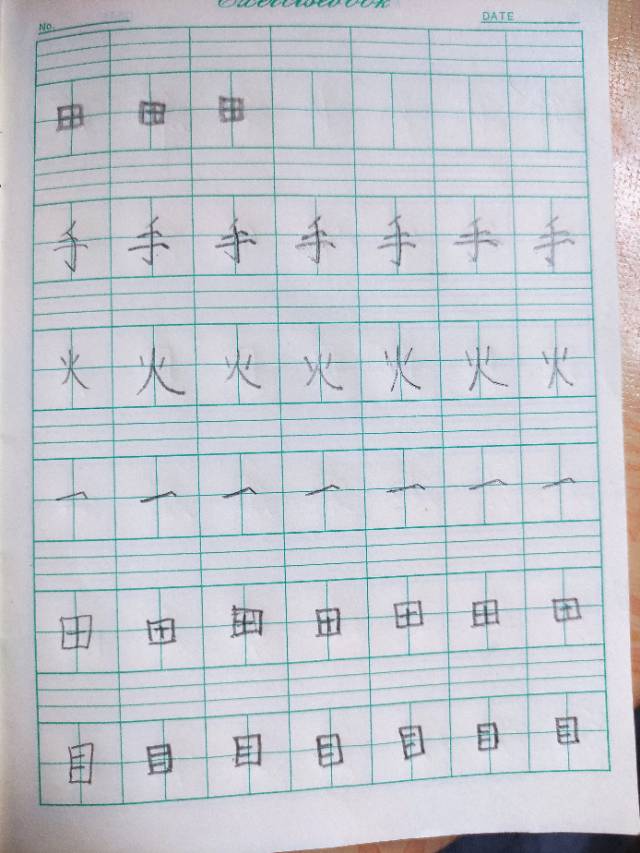 Exercisebook
No. DATE
田 田 田
手 手 手 手 手 手 手
火 火 火 火 火 火 火
一 一 一 一 一 一 一
田 田 田 田 田 田 田
目 目 目 目 目 目 目